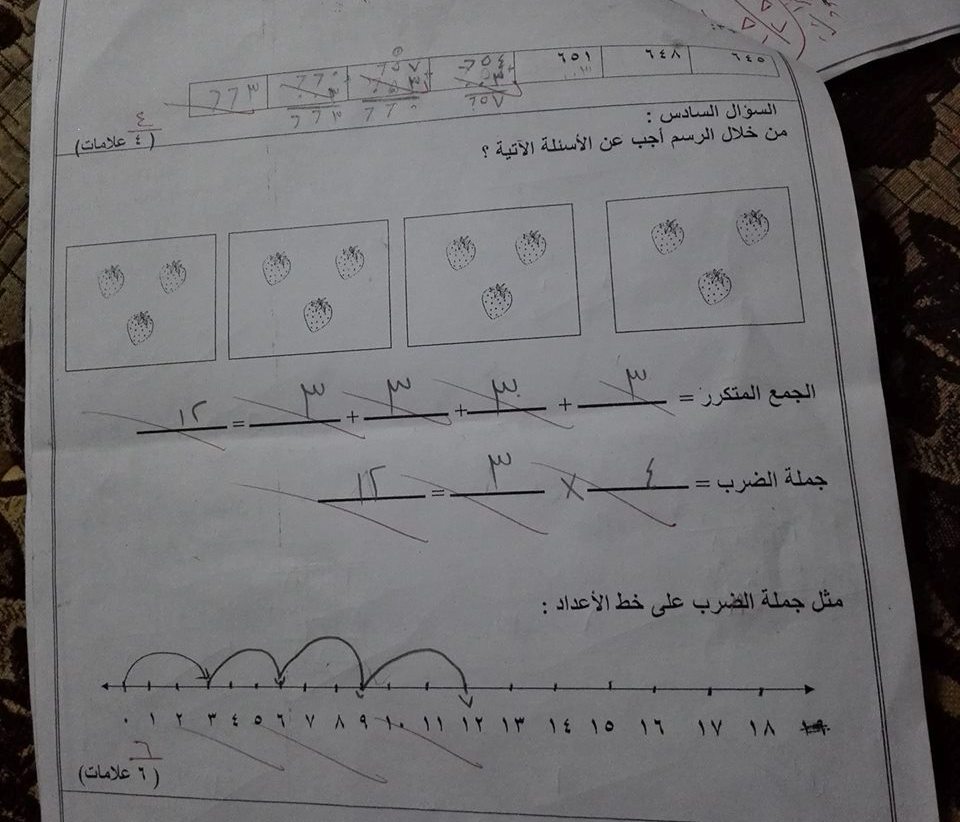 ٦٤٥ ٦٤٨ ٦٥١ ٦٥٤ ٦٥٧ ٦٦٠ ٦٦٣
٦٥٧ ٦٦٠ ٦٦٣
٤
(٤ علامات)
السؤال السادس :
من خلال الرسم أجب عن الأسئلة الآتية ؟
الجمع المتكرر = ٣ + ٣ + ٣ + ٣ = ١٢
جملة الضرب = ٤ × ٣ = ١٢
مثل جملة الضرب على خط الأعداد :
٠ ١ ٢ ٣ ٤ ٥ ٦ ٧ ٨ ٩ ١٠ ١١ ١٢ ١٣ ١٤ ١٥ ١٦ ١٧ ١٨
٦
(٦ علامات)